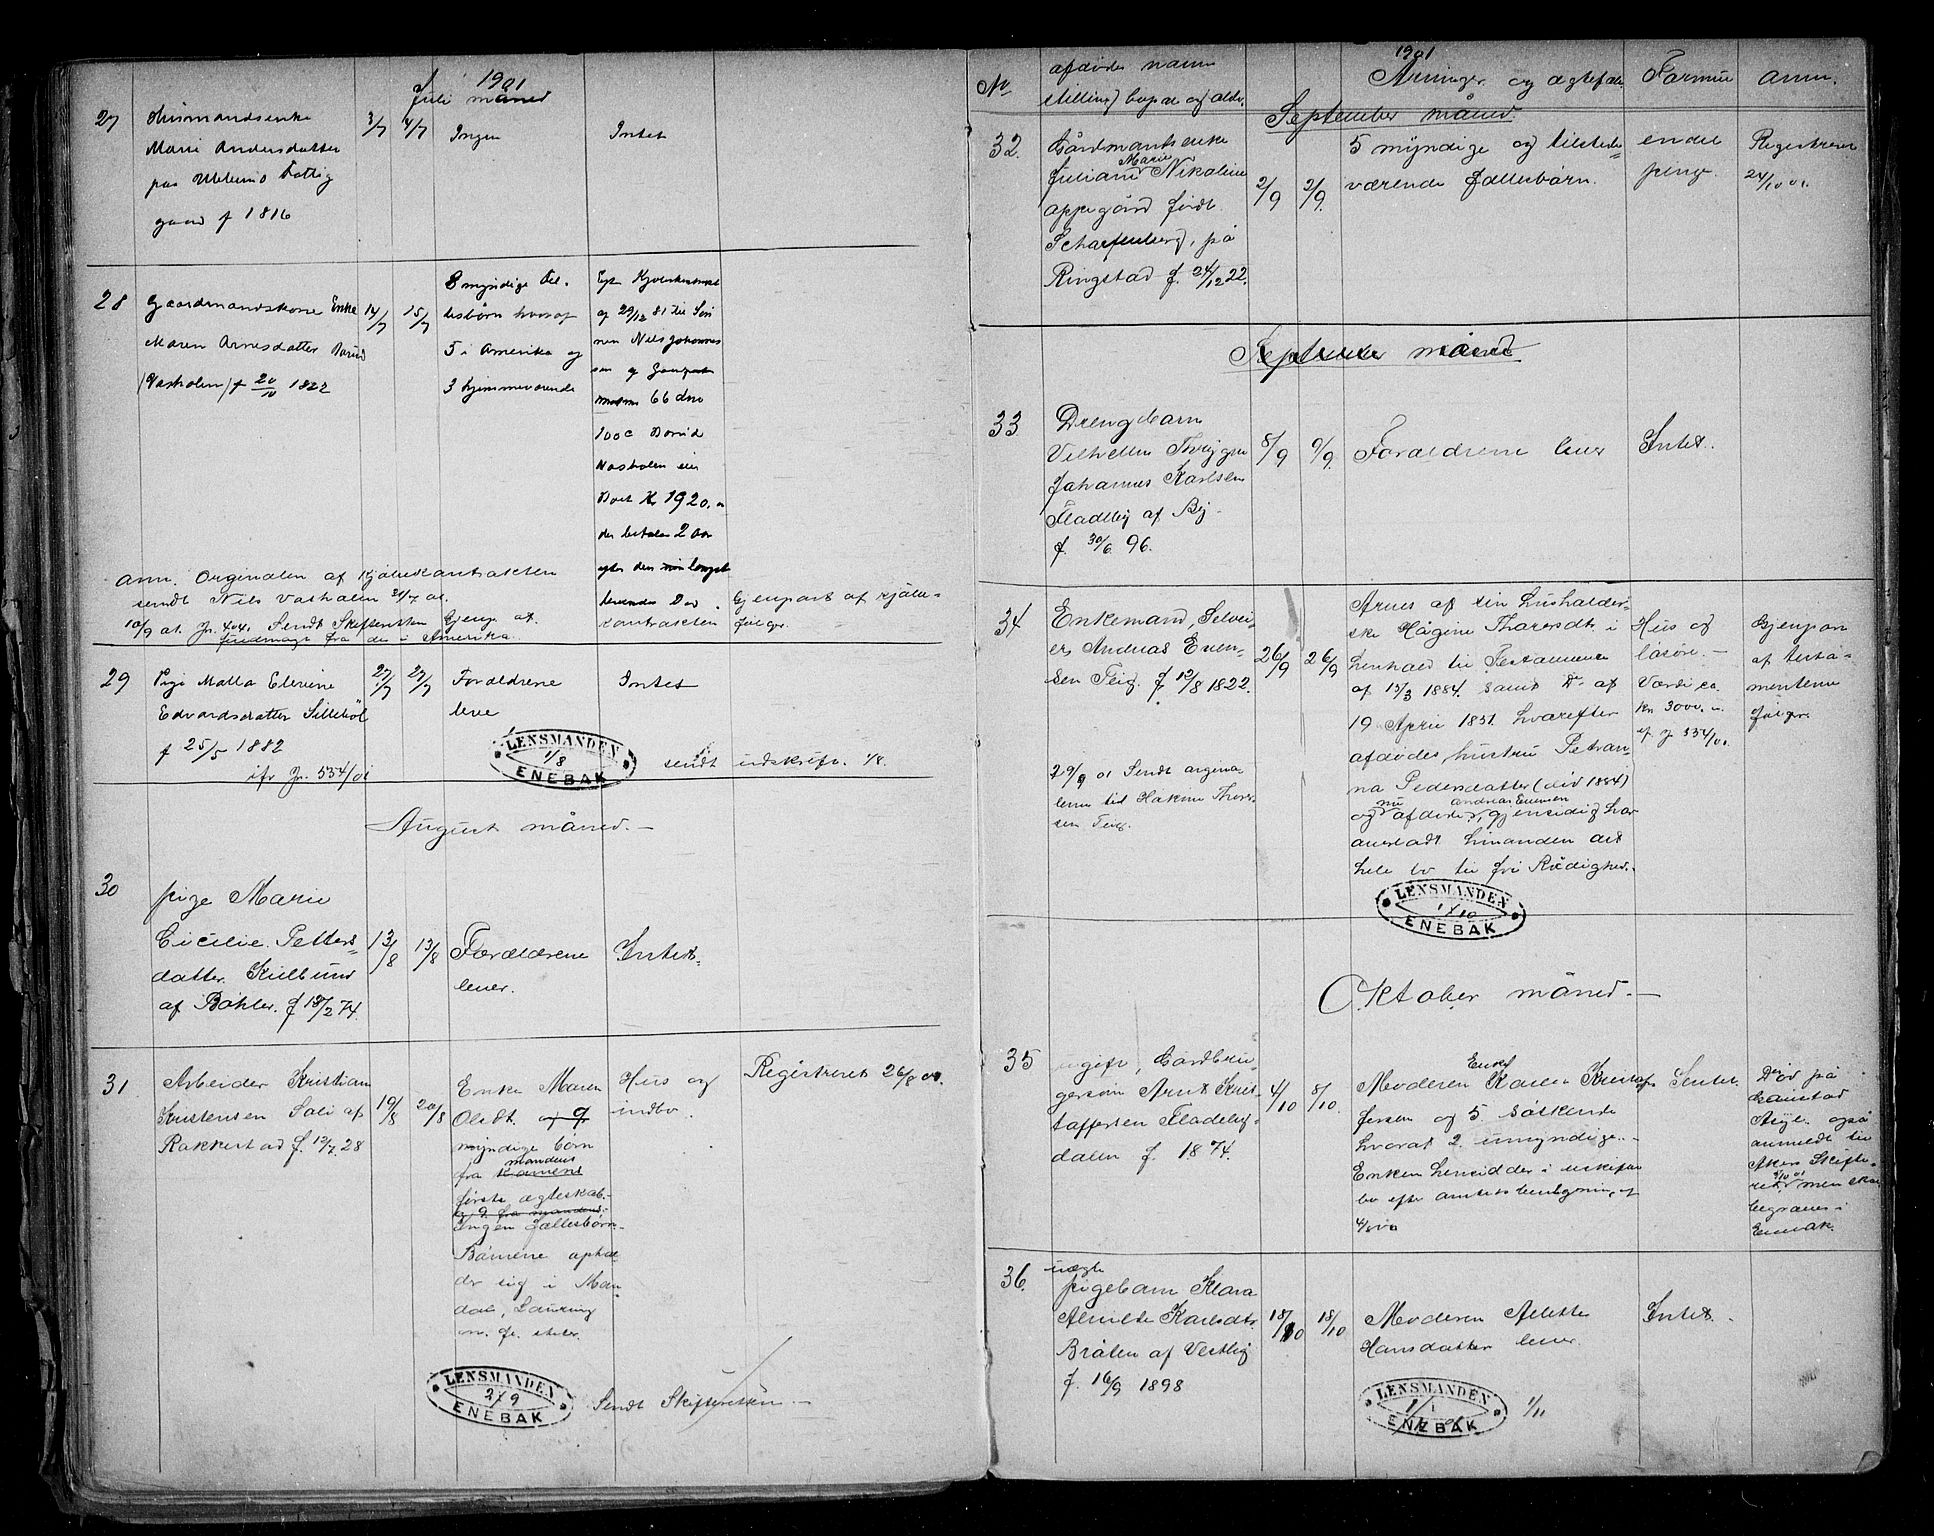 1901
Juli måned
27
Husmandsenke
Marie Andersdatter
paa Fattig
gaard f 1816
3/7
4/7
Ingen
Intet
28
Gaardmandskone Enke
Maren Arnesdatter
Vasholen f 20/10 1822
14/7
15/7
8 myndige Fæl-
lesbørn hvoraf
5 i Amerika og
3 hjemmeværende
Eft Kjøbekontrakt
af 29/12 81 til Søn
nen Nils Johannes
sen
66 dno
100c
Vasholen eier
Boet Kr 1920.
der betales 2 aar
efter den længst
levendes Død.
kontrakten
Gjenpart af kjøbe-
følger
anm. Orginalen af Kjøbekontrakten
sendt Nils Vasholen 31/7 01.
10/9 01. Jr. 404. Sendt Skifteretten Gjenp. af
fuldmagt fra de i Amerika.
29
Pige Malla Elevine
Edvardsdatter Sillebøl
f 25/5 1882
27/7
27/7
Forældrene
leve
Intet
ifr Jr. 534/01
LENSMANDEN
1/8
ENEBAK
sendt udskrift. 1/8.
August måned.-
30
pige Marie
Cicilie Petters-
datter Kidlund
af Bøhler. f 18/2 74.
13/8
13/8
Forældrene
lever.
Intet.
31
Arbeider Kristian
Kristensen Sali af
Rakkestad f. 12/7 28
19/8
20/8
Enke Maren
Olsdt. og 9
myndige børn
mandens
fra konens
første ægteskab.-
og 9 fra mandens.-
Ingen fællesbørn.-
Børnene ophol-
der sig i Man-
dal,
m. fl. steder.
Hus og
indbo.
Registreret 26/8 01.
LENSMANDEN
2/9
ENEBAK
Sendt Skifteretten.-
1901
No
afdødes navn
stilling, bopæl og alder
Arvinger og ægtefæl
Formue
anm.
September måned.
32.
Gårdmandsenke
Marie
Juliane Nikoline
Oppegård født
Scharfenberg, på
Ringstad f. 24/12 22.
2/9
2/9.
5 myndige og tilstede-
værende fællesbørn.
endel
penge.
Registreret
24/10 01.
September måned
33
Drengebarn
Vilhelm Trygve
Johannes Karlsen
Fladeby af By.
f. 30/6 96.
8/9
9/9.
Forældrene lever
Intet.
34
Enkemand, Selvei-
er Andreas Even-
sen Teig. f. 12/8 1822.
26/9
26/9
Arves af sin husholder-
ske Hågine Thoresdt. i
henhold til Testamente
af 13/3 1884. samt Do af
19 April 1851. hvorefter
afdødes hustru Petron-
na Pedersdatter (død 1884)
nu andreas Evensen
og afdøde, gjensidig har
overladt hinanden det
hele bo til fri Rådighed.
Hus og
løsøre.-
Værdi ca.
kr 3000.
cf. J 534/01
Gjenpart
af testa-
menterne
følger.
29/9 01 Sendt orgina-
lerne til Hakine Thores-
sen Teig.
LENSMANDEN
1/10
ENEBAK
Oktober måned.-
35
ugift, Gårdbru-
gersøn Arnt Krist-
toffersen Fladeby-
dalen f. 1874.
4/10
8/10.
Enke
Moderen Karen Kristof-
fersen og 5 søskende
hvoraf 2 umyndige.-
Enken hensidder i uskiftet
bo efter amtets bevilgning af
Intet.
Død på
Gaustad
Asyl. også
anmeldt til
Akers Skifte-
ret 5/10 01 men skal
begraves i
Enebak.
36.
uægte
pigebarn Klara
Alvilde Karlsdt.
Bråten af Vestby
f. 16/9 1898
18/10
18/10
Moderen Alette
Hansdatter lever.
Intet.-
LENSMANDEN
ENEBAK
1/11